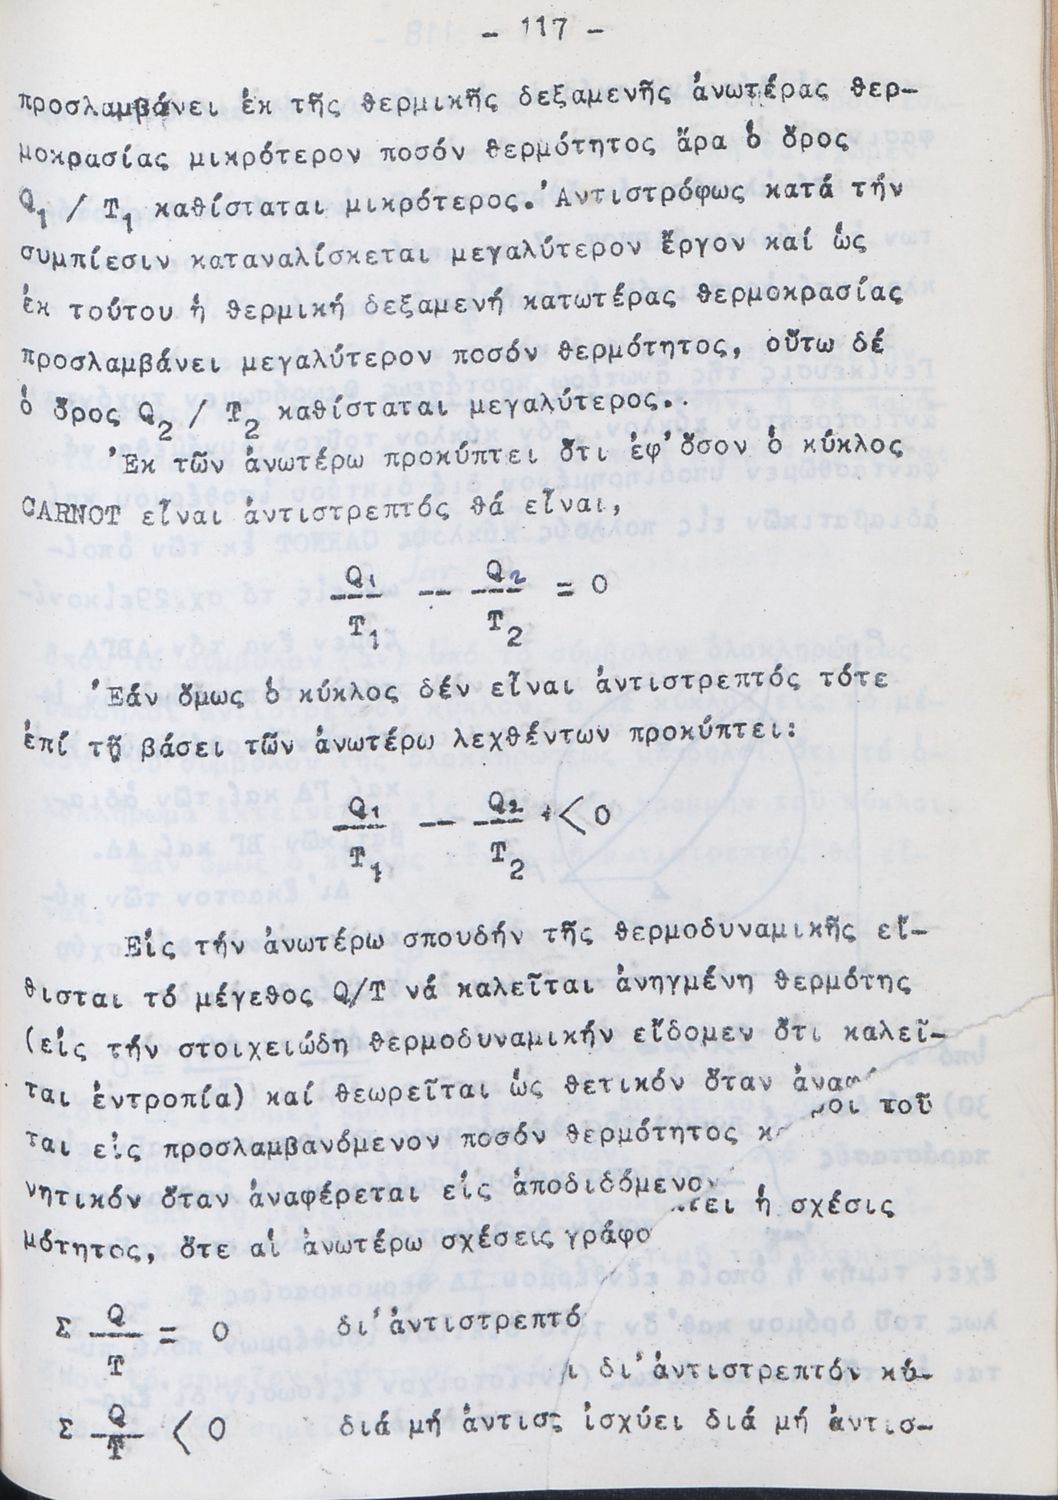 - 117 -
προσλαμβάνει ἐκ τῆς θερμικῆς δεξαμενῆς ἀνωτέρας θερ-
μοκρασίας μικρότερον ποσόν θερμότητος ἄρα ὁ ὅρος
Q1 / T1 καθίσταται μικρότερος. Ἀντιστρόφως κατά τήν
συμπίεσιν καταναλίσκεται μεγαλύτερον ἔργον καί ὡς
ἐκ τούτου ἡ θερμική δεξαμενή κατωτέρας θερμοκρασίας
προσλαμβάνει μεγαλύτερον ποσόν θερμότητος, οὕτω δέ
ὁ ὅρος Q2 / T2 καθίσταται μεγαλύτερος..
Ἐκ τῶν ἀνωτέρω προκύπτει ὅτι ἐφ' ὅσον ὁ κύκλος
CARNOT εἶναι ἀντιστρεπτός θά εἶναι,
Q1 Q2
-- = 0
T1 T2
Ἐάν ὅμως ὁ κύκλος δέν εἶναι ἀντιστρεπτός τότε
ἐπί τῇ βάσει τῶν ἀνωτέρω λεχθέντων προκύπτει:
Q1 Q2
-- < 0
T1 T2
Εἰς τήν ἀνωτέρω σπουδήν τῆς θερμοδυναμικῆς εἴ-
θισται τό μέγεθος Q/T νά καλεῖται ἀνηγμένη θερμότης
(εἰς τήν στοιχειώδη θερμοδυναμικήν εἴδομεν ὅτι καλεῖ-
ται ἐντροπία) καί θεωρεῖται ὡς θετικόν ὅταν
τοῦ
ται εἰς προσλαμβανόμενον ποσόν θερμότητος
νητικόν ὅταν ἀναφέρεται εἰς ἀποδιδόμενον
ἡ σχέσις
μότητος, ὅτε αἱ ἀνωτέρω σχέσεις γράφο
Σ Q = 0 δι' ἀντιστρεπτό
T
δι' ἀντιστρεπτόν κύ-
Σ Q < 0 διά μή ἀντισ ἰσχύει διά μή ἀντισ-
T